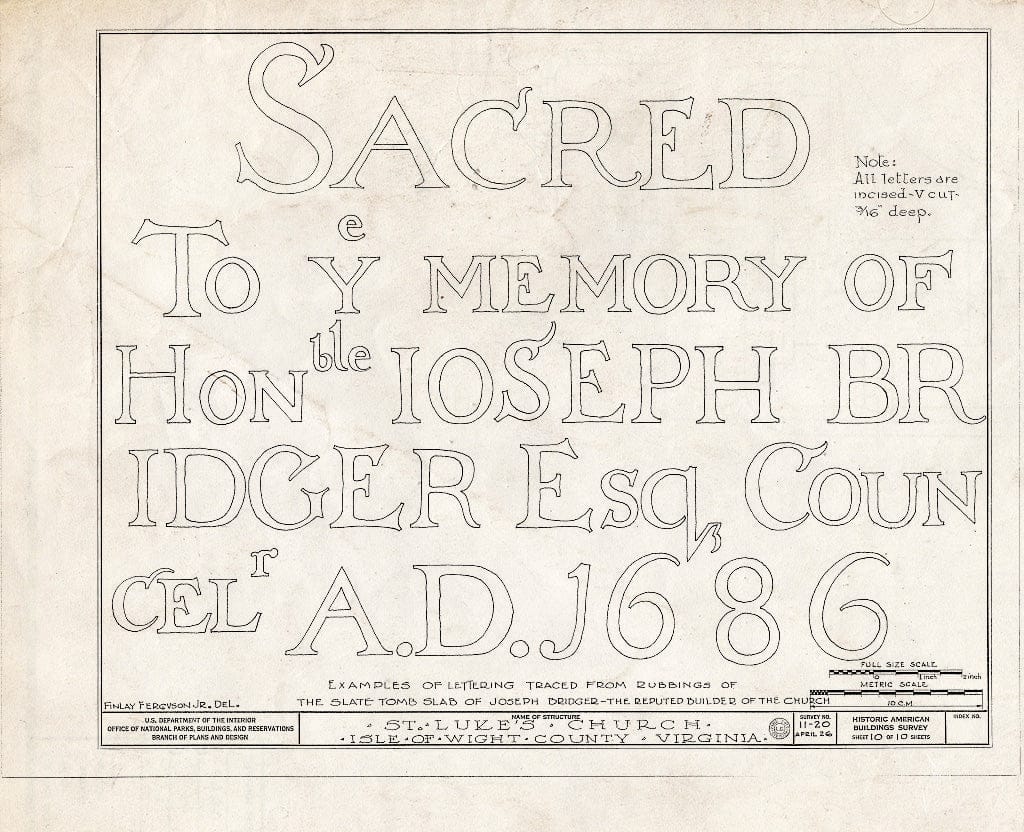 SACRED
Note:
All letters are
incised-V cut-
3/16" deep.
TO Yᵉ MEMORY OF
HONᵇˡᵉ IOSEPH BR
IDGER ESq, COUN
CELʳ A.D. 1686
EXAMPLES OF LETTERING TRACED FROM RUBBINGS OF
THE SLATE TOMB SLAB OF JOSEPH BRIDGER-THE REPUTED BUILDER OF THE CHURCH
FULL SIZE SCALE
0 1 inch 2 inch
METRIC SCALE
10 C.M.
FINLAY FERGVSON JR. DEL.
U.S. DEPARTMENT OF THE INTERIOR
OFFICE OF NATIONAL PARKS, BUILDINGS, AND RESERVATIONS
BRANCH OF PLANS AND DESIGN
NAME OF STRUCTURE
· ST. LUKE'S · CHURCH ·
· ISLE · OF · WIGHT · COUNTY · VIRGINIA ·
SURVEY NO.
11-20
APRIL 26
HISTORIC AMERICAN
BUILDINGS SURVEY
SHEET 10 OF 10 SHEETS
INDEX NO.